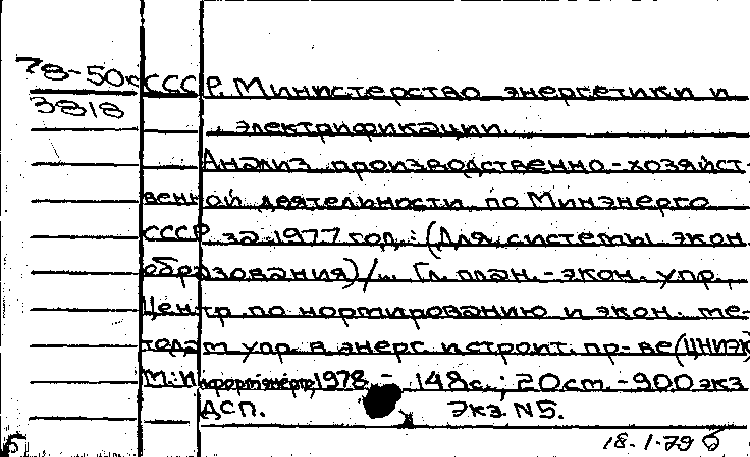 78-50к СССР. Министерство энергетики и
3818 электрификации.
Анализ производственно-хозяйст-
венной деятельности по Минэнерго
СССР за 1977 год.: (Для системы экон.
образования)/... Гл. план.-экон. упр.,
Центр по нормированию и экон. ме-
тодам упр. в энерг. и строит. пр-ве (ЦНИЭК)
М.: Информэнерго, 1978. - 148с.; 20см. -900 экз
ДСП. Экз N5.
18.1.79 б
б